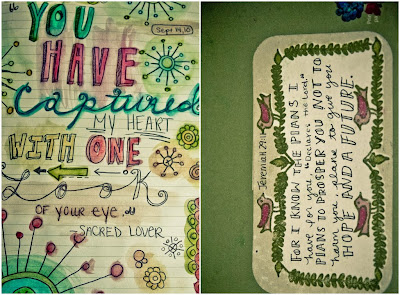 “ YOU
Sept 19, 10
HAVE
Captured
MY HEART
WITH ONE
LooK
OF YOUR EYE."
- SACRED LOVER
Jeremiah 29:11
FOR I KNOW THE PLANS I
have for you, "declares the Lord,"
PLANS TO PROSPER YOU NOT TO
harm you, plans to give you
HOPE AND A FUTURE.